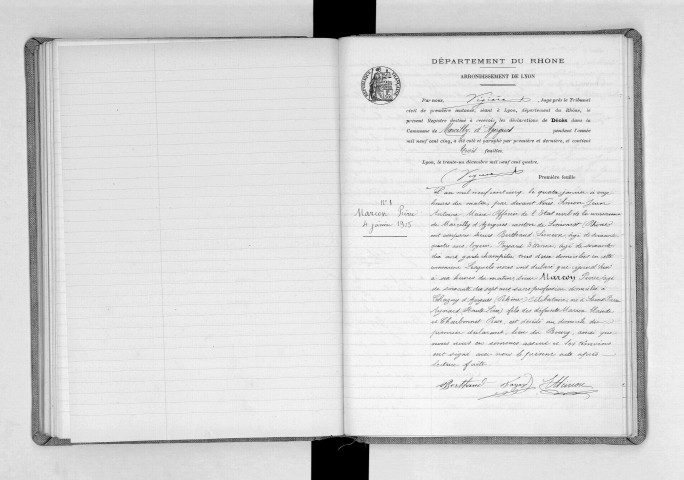 DÉPARTEMENT DU RHONE
ARRONDISSEMENT DE LYON
RÉPUBLIQUE FRANÇAISE
Par nous, Juge près le Tribunal
civil de première instance, séant à Lyon, département du Rhône, le
présent Registre destiné à recevoir les déclarations de Décès dans la
Commune de Marcilly d'Azergues pendant l'année
mil neuf cent cinq, a été coté et paraphé par première et dernière, et contient
trois feuilles.
Lyon, le trente-un décembre mil neuf cent quatre.
Première feuille
N° 1
Marcon Pierre
4 janvier 1905
L'an mil neuf cent cinq, le quatre janvier à onze
heures du matin, par devant Nous Simon Jean
Antoine, Maire officier de l'Etat civil de la commune
de Marcilly d'Azergues, canton de Limonest (Rhône)
ont comparu Berthaud âgé de
quatre ans, âgé de soixante
dix ans, garde champêtre tous deux domiciliés en cette
commune. Lesquels nous ont déclaré que
à six heures du matin, Marcon Pierre âgé
de soixante dix sept ans sans profession domicilié à
d'Azergues (Rhône) célibataire, né à Saint
(Haute Loire) fils des défunts Marcon Claude
et, est décédé au domicile du
premier déclarant, lieu du Bourg, ainsi que
nous nous en sommes assuré et les témoins
ont signé avec nous le présent acte après
lecture faite.
Berthaud Simon